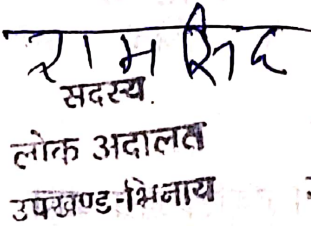 रामसिंद
सदस्य.
लोक अदालत
उपखण्ड-भिनाय